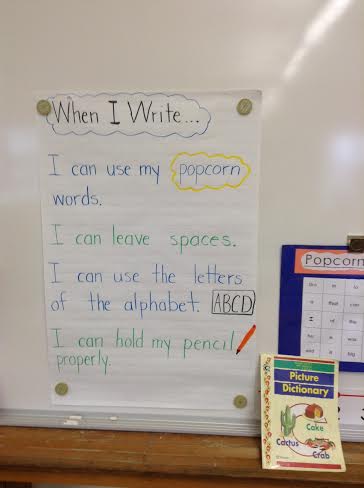 When I Write...
I can use my popcorn
words.
I can leave spaces.
I can use the letters
of the alphabet. ABCD
I can hold my pencil
properly.
Popcorn
Picture
Dictionary
Cake
Cactus
Crab